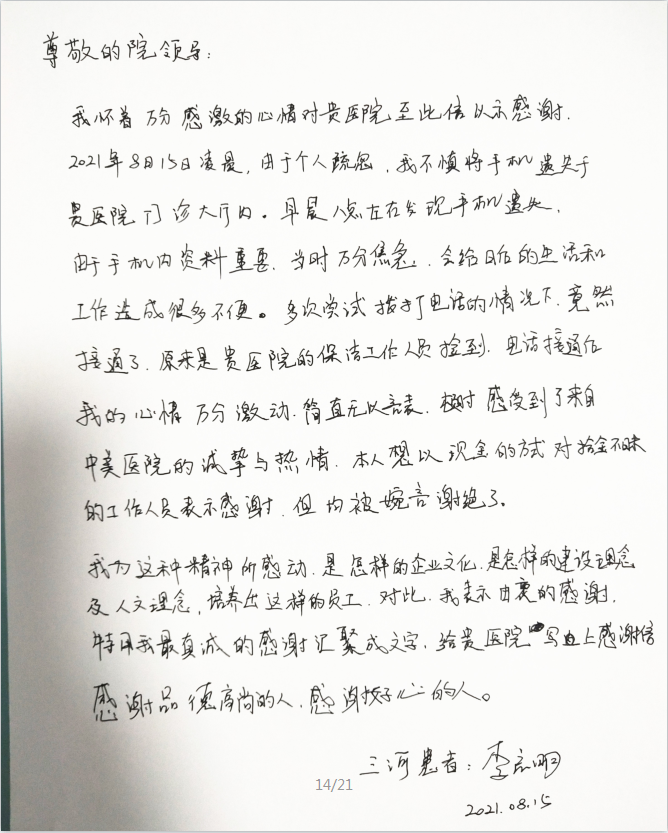 尊敬的院领导：
我怀着万分感激的心情对贵医院至此信以示感谢.
2021年8月15日凌晨，由于个人疏忽，我不慎将手机遗失于
贵医院门诊大厅内。早晨八点左右发现手机遗失，
由于手机内资料重要，当时万分焦急，会给日后的生活和
工作造成很多不便。多次尝试拨打电话的情况下，竟然
接通了，原来是贵医院的保洁工作人员捡到，电话接通后
我的心情万分激动，简直无以言表，极时感受到了来自
中美医院的诚挚与热情，本人想以现金的方式对拾金不昧
的工作人员表示感谢，但均被婉言谢绝了。
我为这种精神所感动，是怎样的企业文化，是怎样的建设理念
及人文理念，培养出这样的员工，对此，我表示由衷的感谢，
特用我最真诚的感谢汇聚成文字，给贵医院写上感谢信
感谢品德高尚的人，感谢好心的人。
三河患者：李明
14/21
2021.08.15